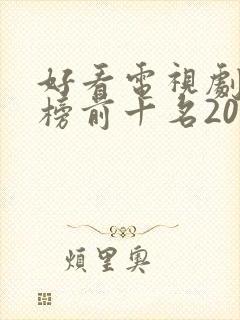 好看電視劇
榜前十名20
煩里奧